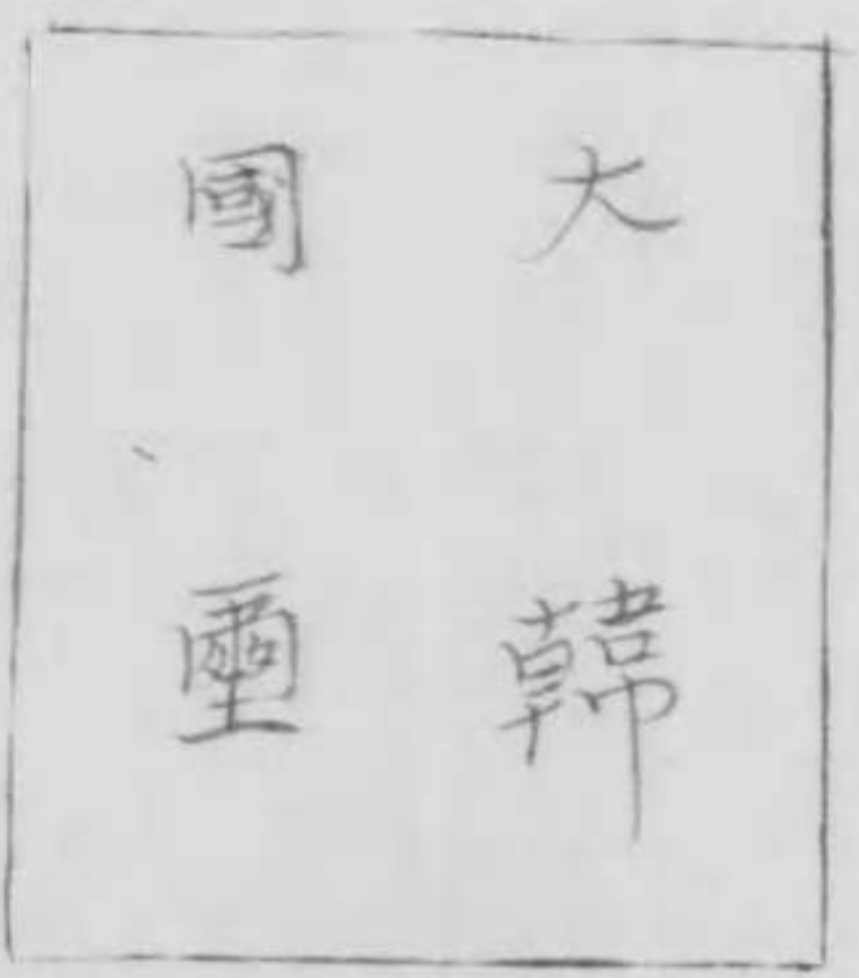 大韓
國璽